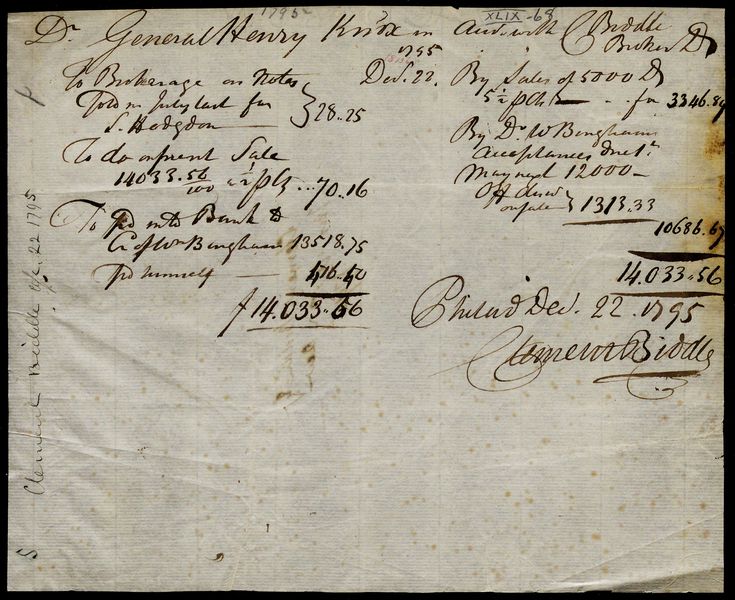 1795
XLIX-68
Dr General Henry Knox in Acct with C Biddle
Broker Dr
1795
To Brokerage on Notes
Sold in July last for
S. Hodgdon 28..25
To do on present Sale
14033.56/100 ... 70.16
To pd into Bank to
Cr of Wm Bingham 13518.75
pd himself 416.40
14.033..56
Decr. 22. By Sales of 5000 Ds
for 3346.89
By Do W Binghams
acceptances due 1st
May next 12000
Off disct
on sale 1313.33
10686.67
14.033.56
Philad Dec. 22. 1795
Clement Biddle
Clement Biddle 22 1795
5